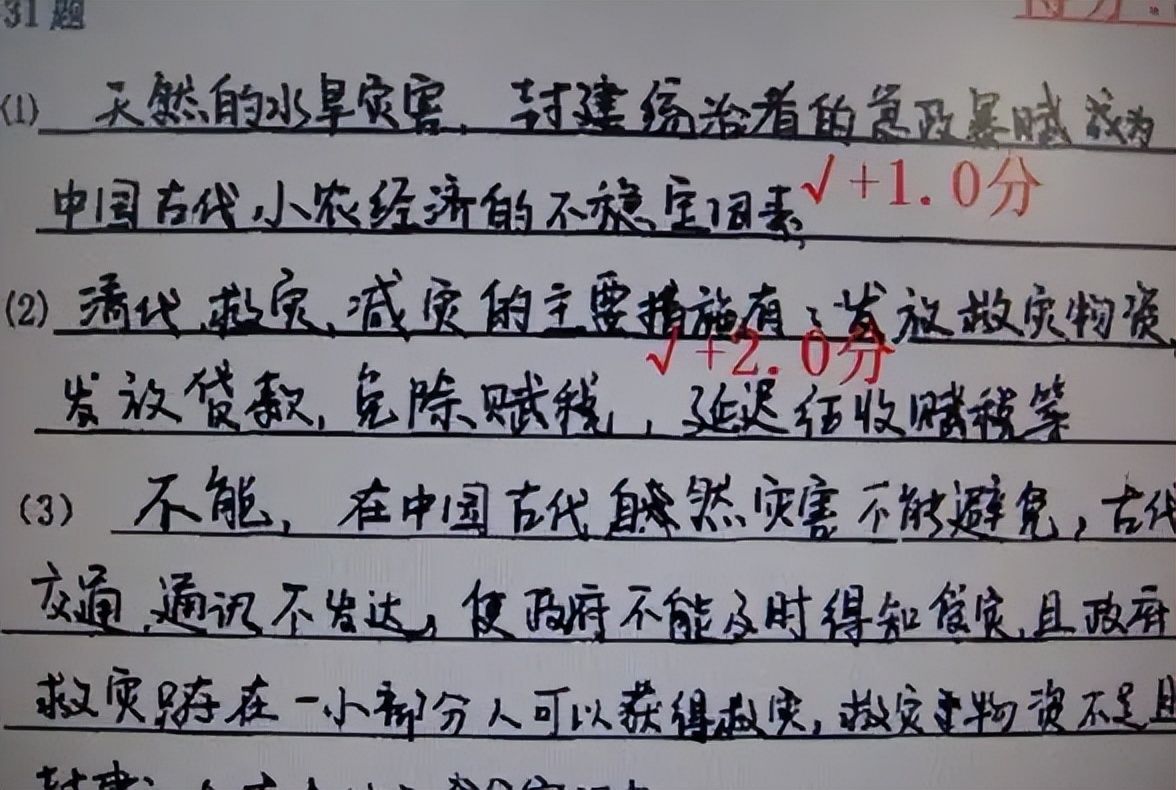 31题
(1) 天然的水旱灾害、封建统治者的急政暴赋成为
中国古代小农经济的不稳定因素,
√+1.0分
(2) 清代救灾、减灾的主要措施有:发放救灾物资,
√+2.0分
发放贷款,免除赋税,延迟征收赋税等
(3) 不能,在中国古代自然灾害不能避免,古代
交通、通讯不发达,使政府不能及时得知受灾,且政府
救灾只存在一小部分人可以获得救灾,救灾物资不足且